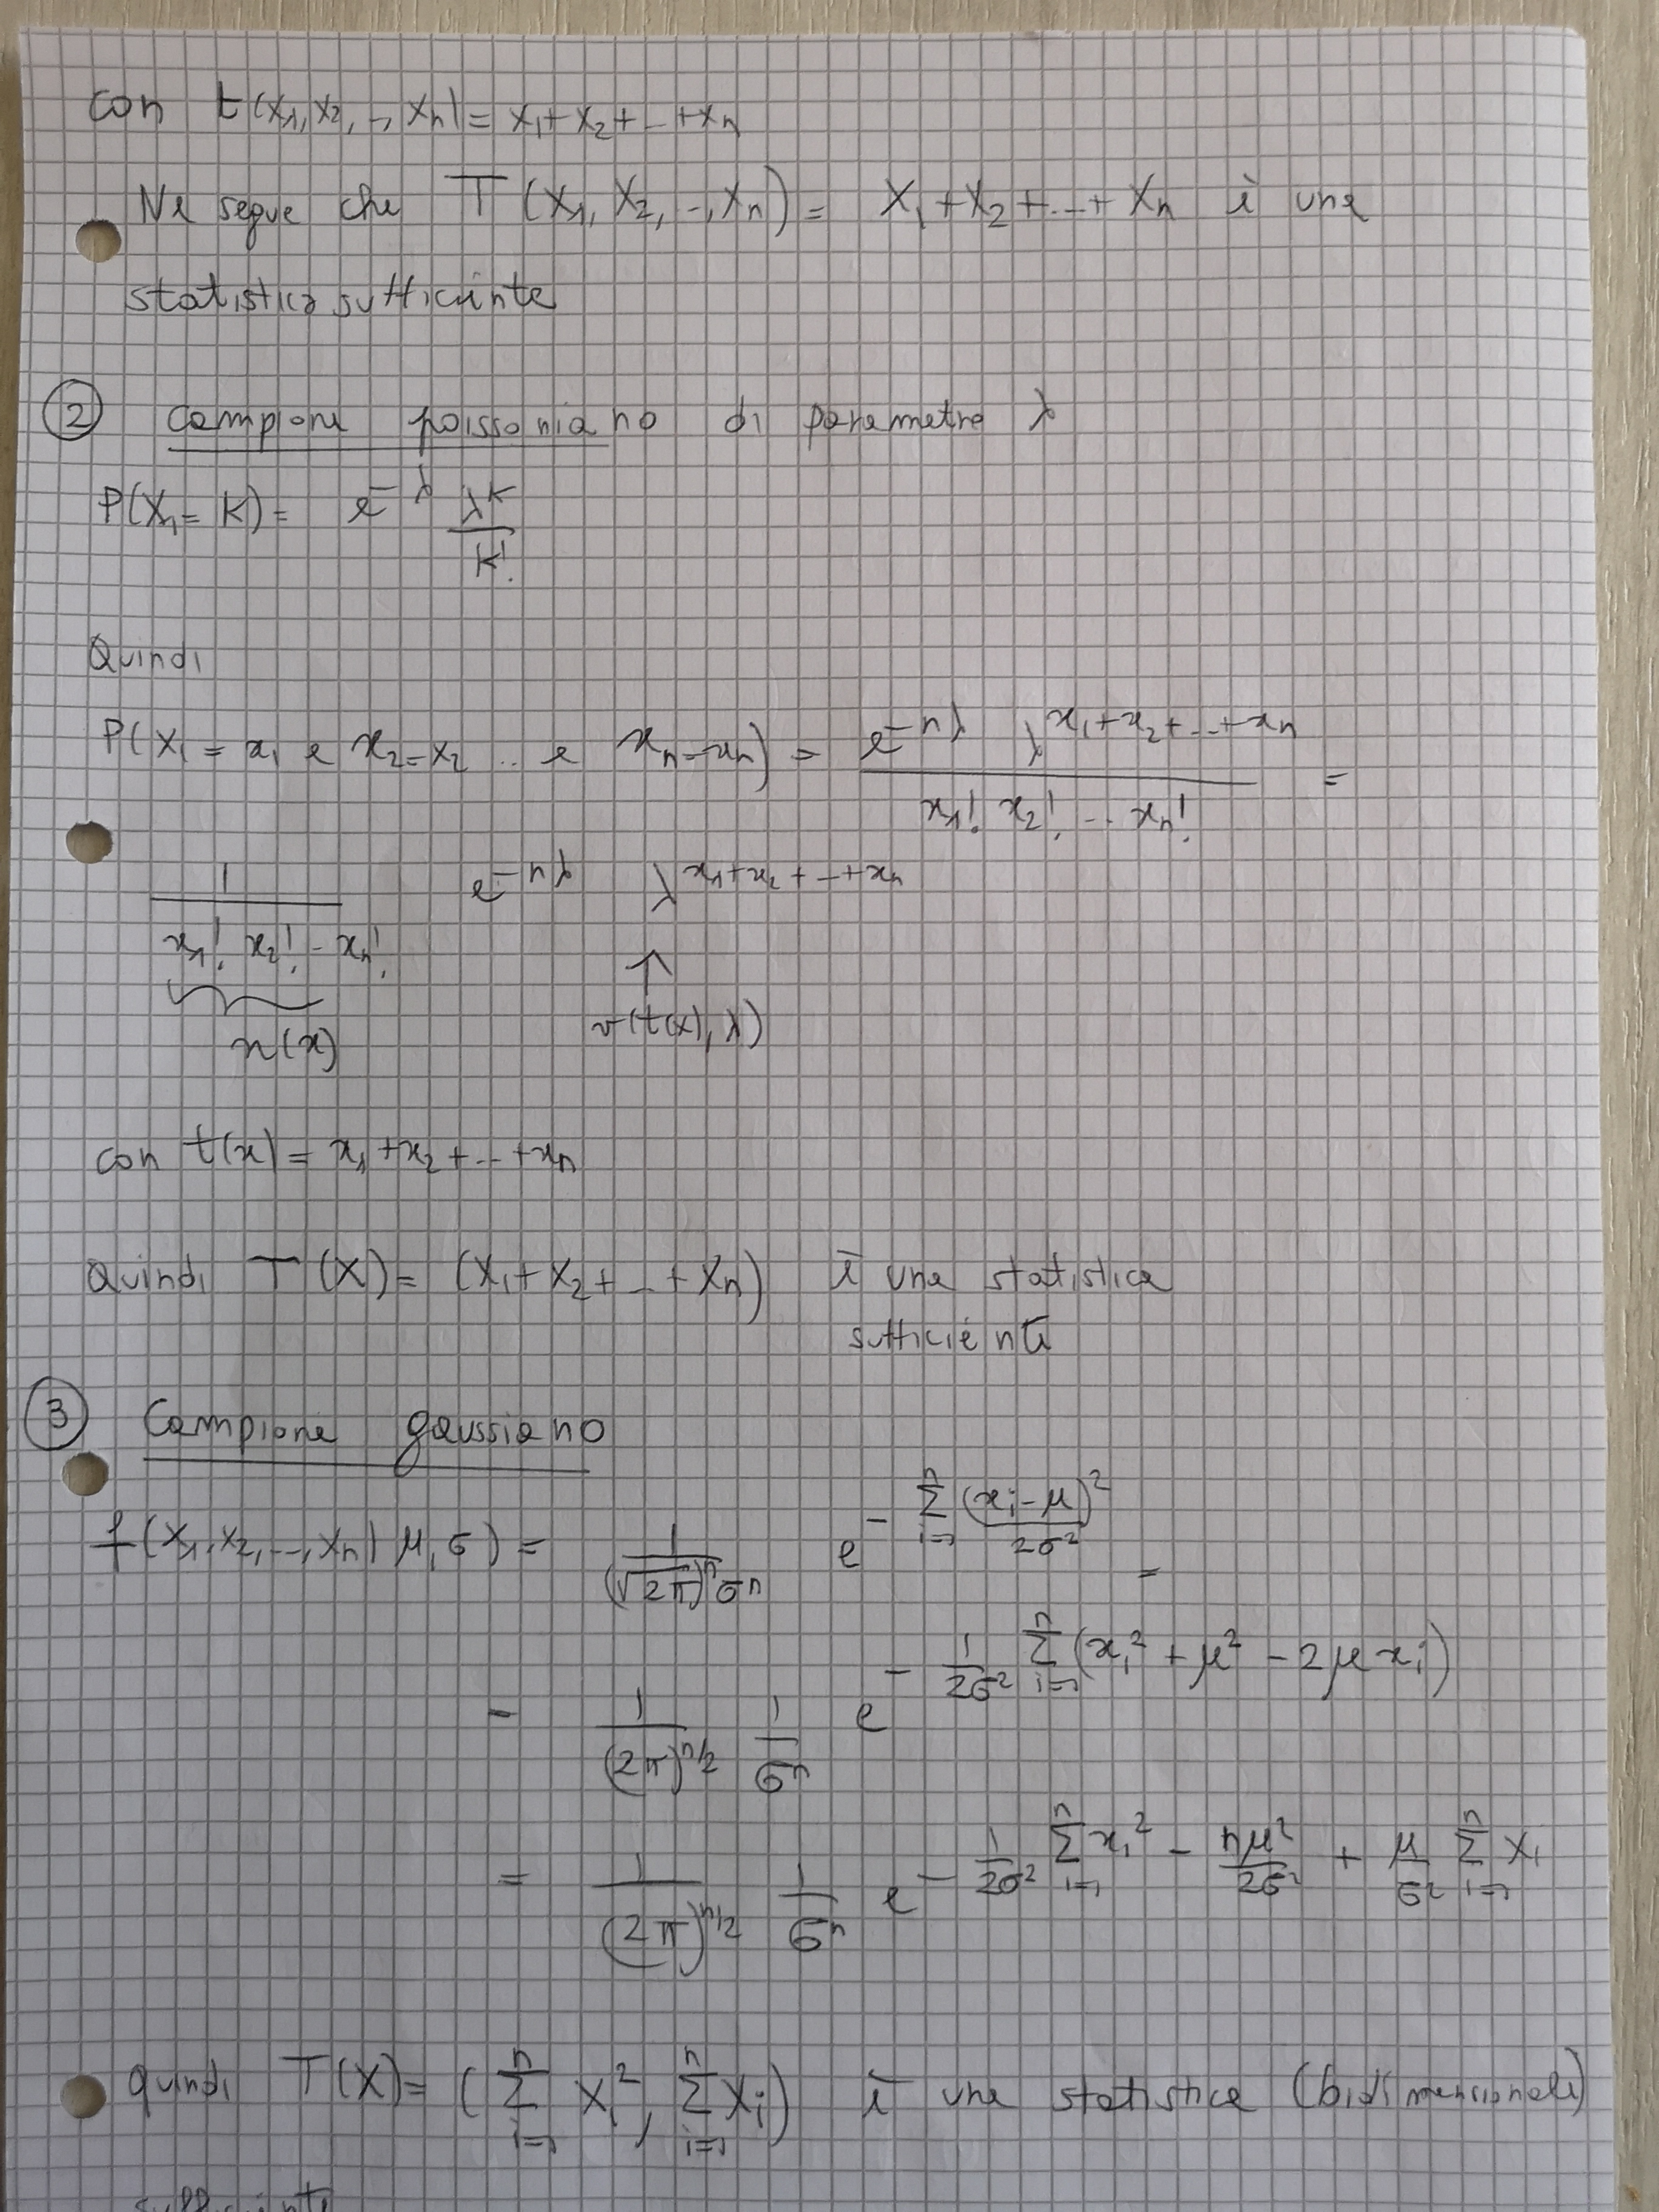 con t(x₁, x₂, .., xₙ) = x₁ + x₂ + .. + xₙ
Ne segue che T (X₁, X₂, .., Xₙ) = X₁ + X₂ + ... + Xₙ è una
statistica sufficiente
② Campione poissoniano di parametro λ
P(X₁ = K) = e^{-λ} λ^K / K!
Quindi
P(X₁ = x₁ e x₂ = x₂ .. e xₙ = xₙ) = e^{-nλ} λ^{x₁+x₂+...+xₙ} / x₁! x₂! ... xₙ! =
1 / x₁! x₂! .. xₙ! e^{-nλ} λ^{x₁+x₂+...+xₙ}
↑
u(x) v(t(x), λ)
con t(x) = x₁ + x₂ + ... + xₙ
Quindi T (X) = (X₁ + X₂ + .. + Xₙ) è una statistica
sufficiente
③ Campione gaussiano
f(x₁, x₂, ..., xₙ | μ, σ) = 1 / (√2π)ⁿ σⁿ e^{- Σ_{i=1}^{n} (xᵢ - μ)² / 2σ²} =
= 1 / (2π)^{n/2} 1 / σⁿ e^{- 1/2σ² Σ_{i=1}^{n} (xᵢ² + μ² - 2μ xᵢ)}
= 1 / (2π)^{n/2} 1 / σⁿ e^{- 1/2σ² Σ_{i=1}^{n} xᵢ² - nμ²/2σ² + μ/σ² Σ_{i=1}^{n} xᵢ}
quindi T(X) = (Σ_{i=1}^{n} Xᵢ², Σ_{i=1}^{n} Xᵢ) è una statistica (bidimensionale)
sufficiente